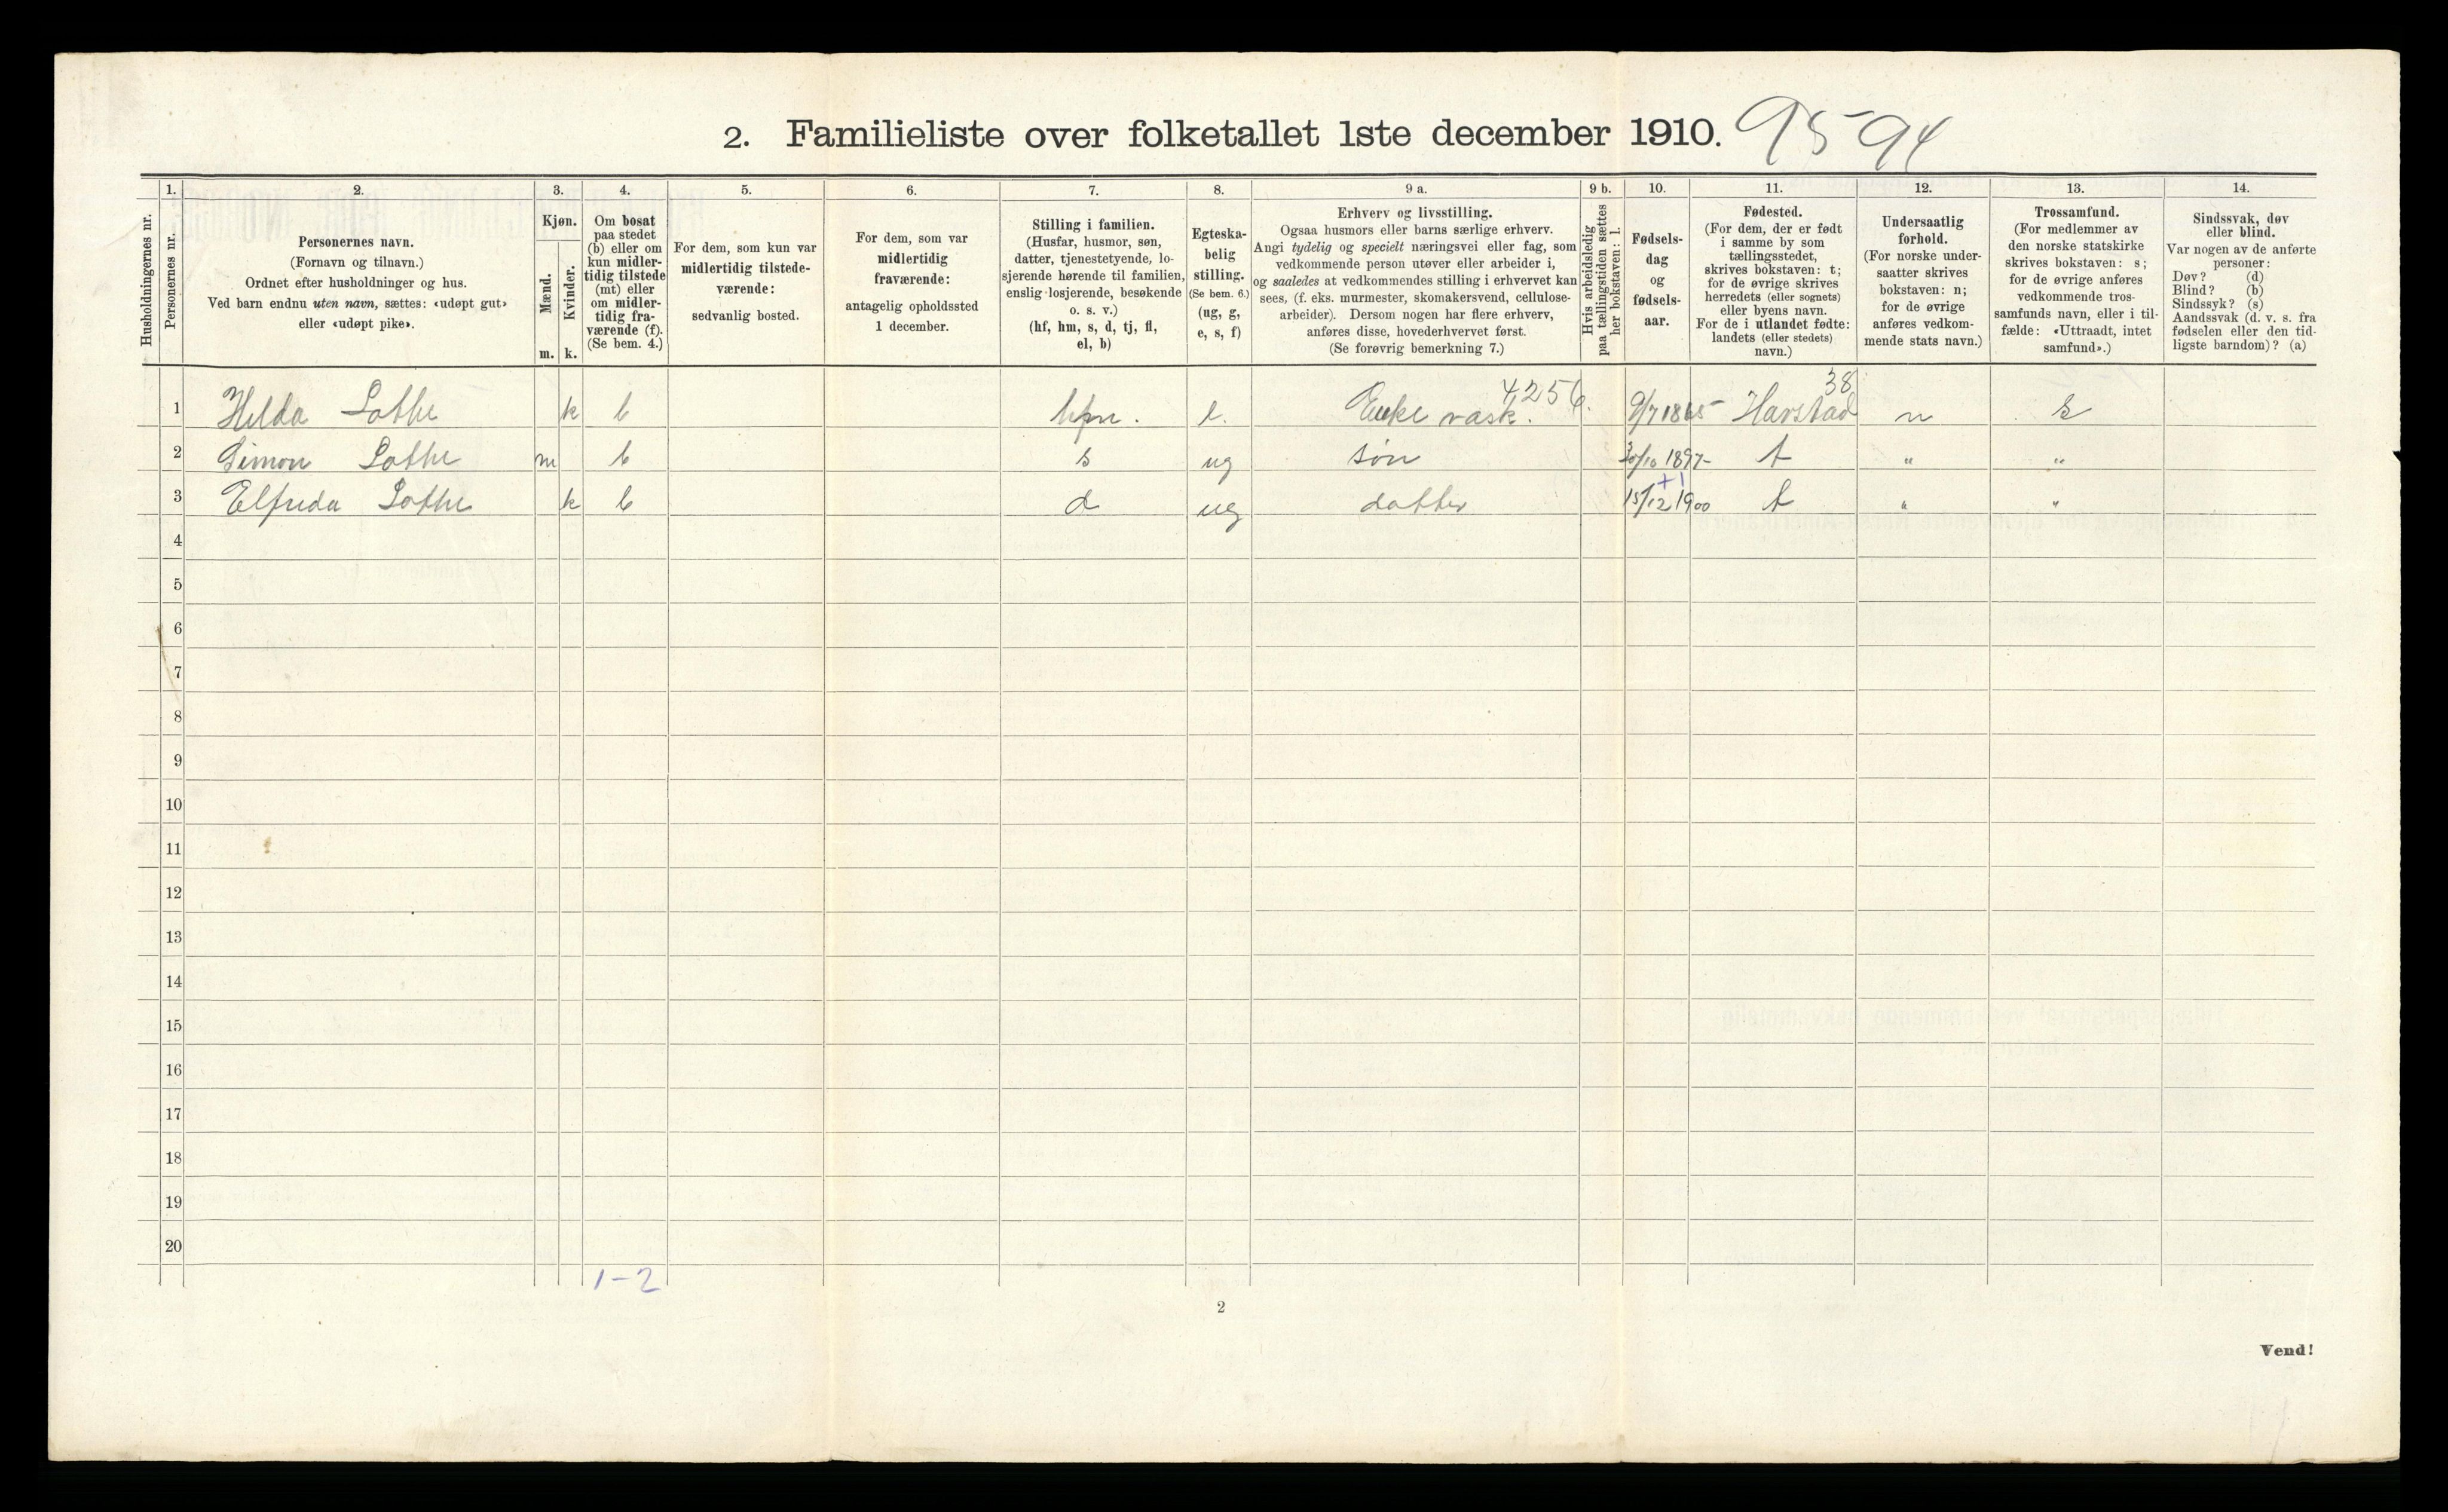 2. Familieliste over folketallet 1ste december 1910. 9594
1. 2. 3. 4. 5. 6. 7. 8. 9 a. 9 b. 10. 11. 12. 13. 14.
Husholdningernes nr.
Personernes nr.
Personernes navn.
(Fornavn og tilnavn.)
Ordnet efter husholdninger og hus.
Ved barn endnu uten navn, sættes: «udøpt gut»
eller «udøpt pike».
Kjøn.
Mænd.
m.
Kvinder.
k.
Om bosat
paa stedet
(b) eller om
kun midler-
tidig tilstede
(mt) eller
om midler-
tidig fra-
værende (f).
(Se bem. 4.)
For dem, som kun var
midlertidig tilstede-
værende:
sedvanlig bosted.
For dem, som var
midlertidig
fraværende:
antagelig opholdssted
1 december.
Stilling i familien.
(Husfar, husmor, søn,
datter, tjenestetyende, lo-
sjerende hørende til familien,
enslig losjerende, besøkende
o. s. v.)
(hf, hm, s, d, tj, fl,
el, b)
Egteska-
belig
stilling.
(Se bem. 6.)
(ug, g,
e, s, f)
Erhverv og livsstilling.
Ogsaa husmors eller barns særlige erhverv.
Angi tydelig og specielt næringsvei eller fag, som
vedkommende person utøver eller arbeider i,
og saaledes at vedkommendes stilling i erhvervet kan
sees, (f. eks. murmester, skomakersvend, cellulose-
arbeider). Dersom nogen har flere erhverv,
anføres disse, hovederhvervet først.
(Se forøvrig bemerkning 7.)
Hvis arbeidsledig
paa tællingstiden sættes
her bokstaven: l.
Fødsels-
dag
og
fødsels-
aar.
Fødested.
(For dem, der er født
i samme by som
tællingsstedet,
skrives bokstaven: t;
for de øvrige skrives
herredets (eller sognets)
eller byens navn.
For de i utlandet fødte:
landets (eller stedets)
navn.)
Undersaatlig
forhold.
(For norske under-
saatter skrives
bokstaven: n;
for de øvrige
anføres vedkom-
mende stats navn.)
Trossamfund.
(For medlemmer av
den norske statskirke
skrives bokstaven: s;
for de øvrige anføres
vedkommende tros-
samfunds navn, eller i til-
fælde: «Uttraadt, intet
samfund».)
Sindssvak, døv
eller blind.
Var nogen av de anførte
personer:
Døv? (d)
Blind? (b)
Sindssyk? (s)
Aandssvak (d. v. s. fra
fødselen eller den tid-
ligste barndom)? (a)
4256. 38
1 Hilda Lothe k b hm. e. Enke vask. 9/7 1865 Harstad n s
2 Simon Lothe m b s ug søn 30/10 1897 t " "
+1
3 Elfrida Lothe k b d ug datter 15/12 1900 t " "
4
5
6
7
8
9
10
11
12
13
14
15
16
17
18
19
20
1-2
2
Vend!